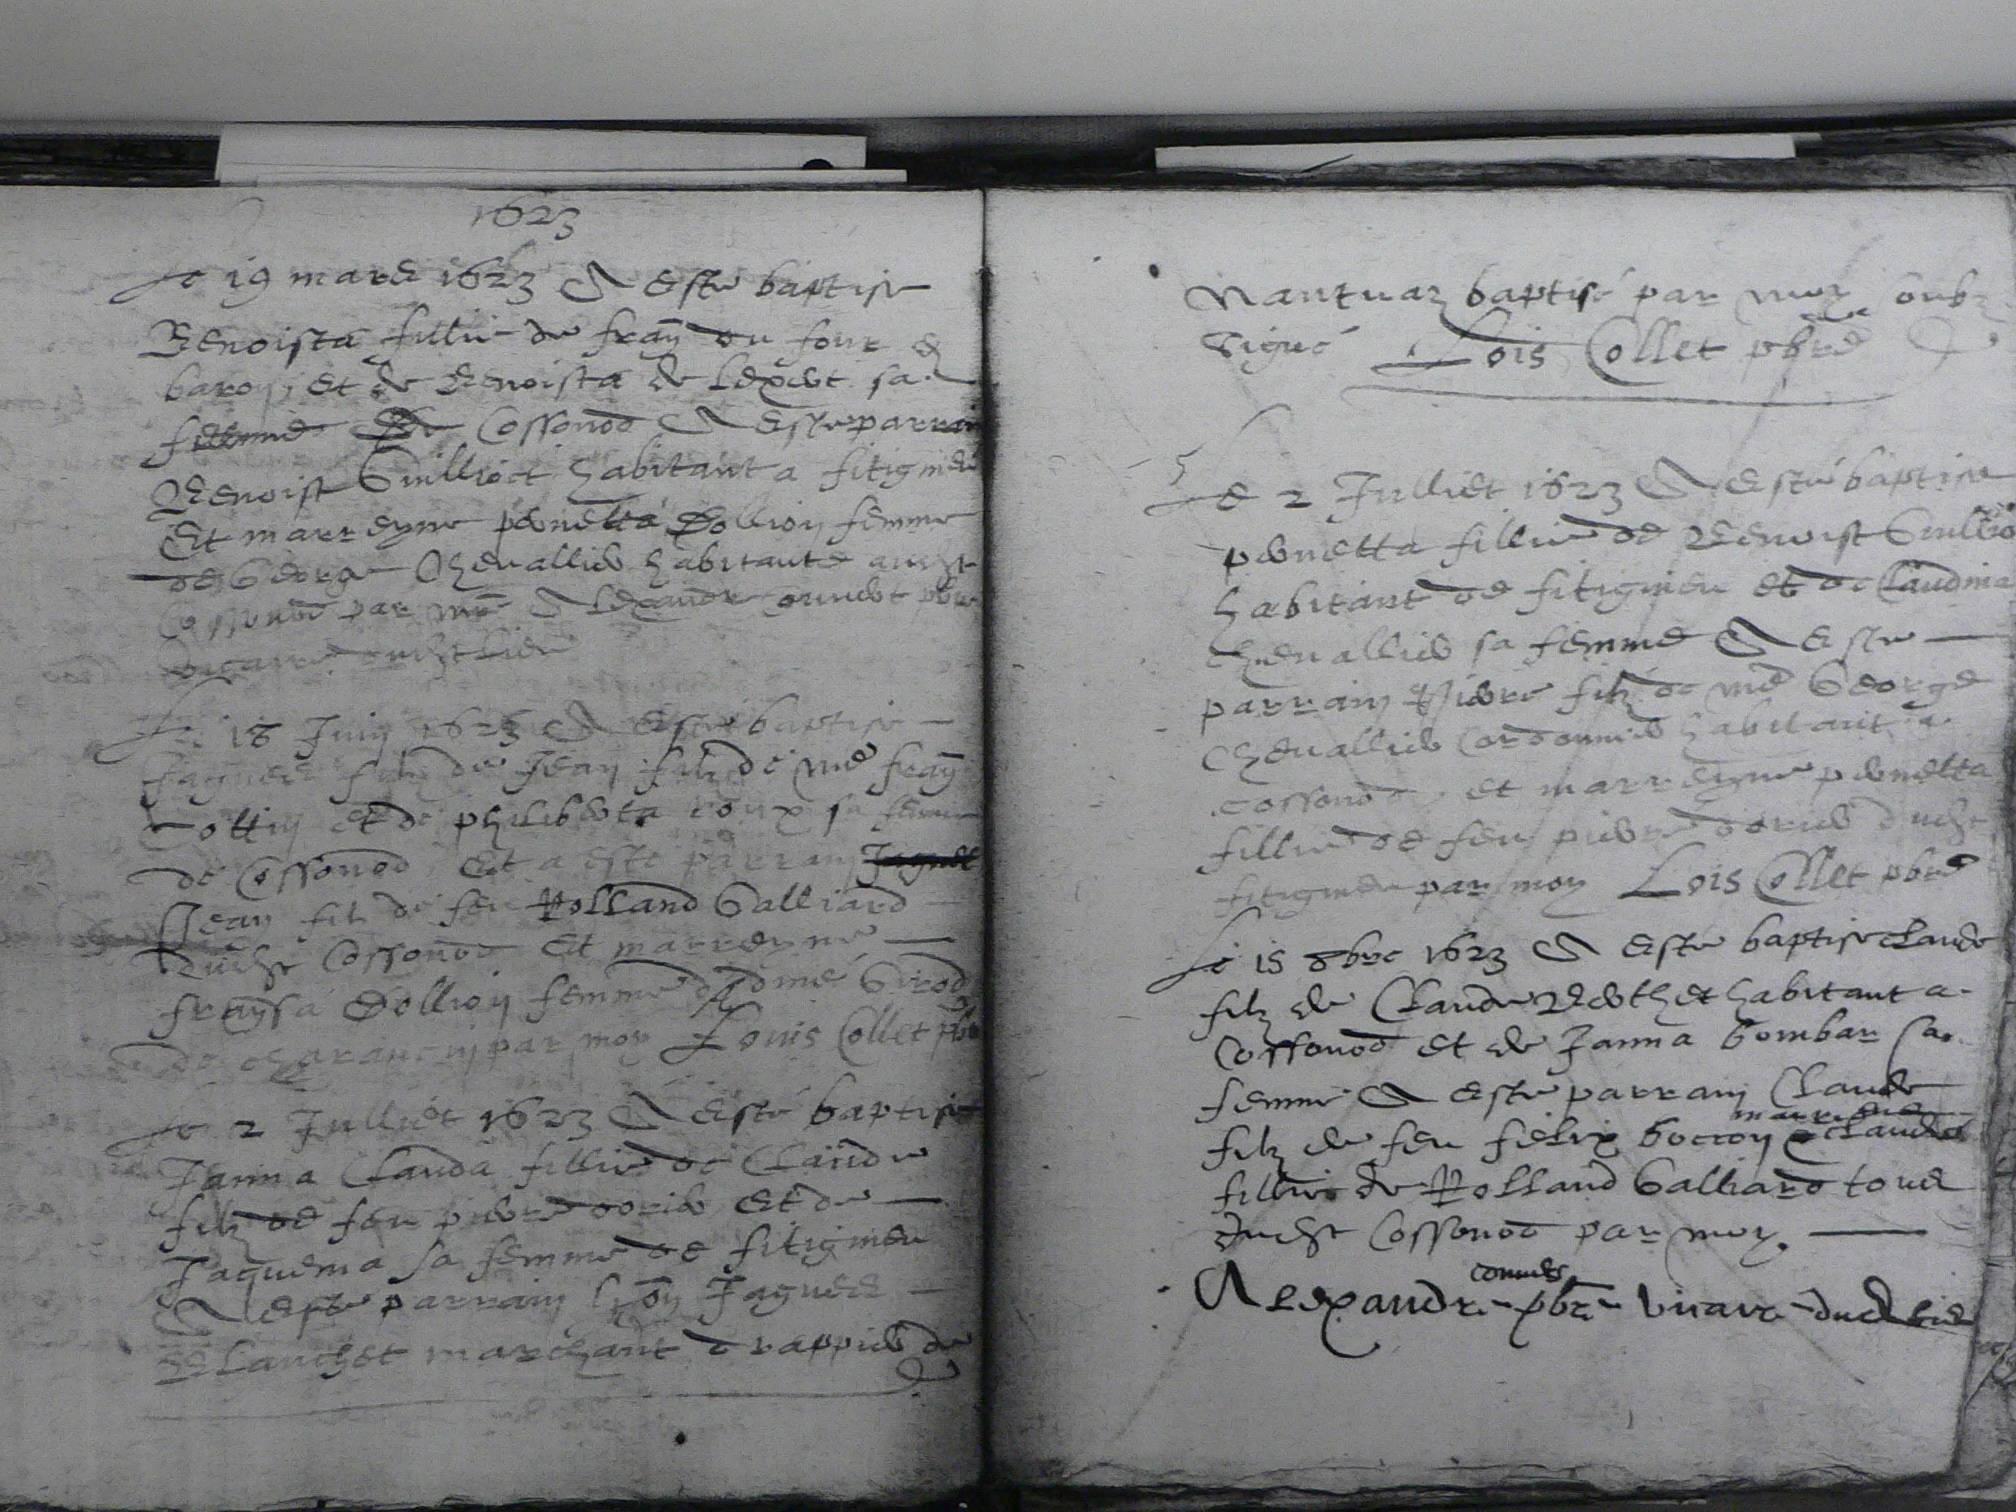 1623
Le 19 mars 1623 A este baptise
Benoista fillie de frāy du four
baron, et de Benoista de sa
femme de Cossonod A este parrain
Benoist Guilliot habitant a fitignieu
Et marreyne pernetta Dollion femme
de George Chevallier habitante audict
Cossonod par me Alexandre pbre
vicaire dudict lieu
Le 18 Juin 1623 A este baptise
Jaques filz de Jean filz de me frāy
Cottin et de philiberta roux sa femme
de Cossonod, Et a este parrain
Jean filz de feu Rolland Galliard
dudict Cossonod Et marreyne
fransa Dollion femme d girod
de charancin par moy Louis Collet pbre
Le 2 Julliet 1623 A este baptise
Janna Clauda fillie de Claude
filz de feu pierre dorier Et de
Jaquema sa femme de fitignieu
A este parrain Jaques
Blanchet marchant drappier de
Nantuaz baptisé par moy soubz
signé Lois Collet pbre
Le 2 Julliet 1623 A esté baptise
pernetta fillie de Benoist Guilliot
habitant de fitignieu et de Claudina
chevallier sa femme A este
parrain Pierre filz de me George
Chevallier Cordonnier habitant a
Cossonod, et marreyne pernetta
fillie de feu pierre dorier dudict
fitignieu par moy Lois Collet pbre
Le 15 8bre 1623 A este baptise Claude
filz de Claude Berthet habitant a
Cossonod et de Janna Gombar sa
femme A este parrain Claude
filz de feu felix bocron marreyne Clauda
fillie de Rolland Galliard tous
dudict Cossonod par moy.
Alexandre pbre vicaire dud lieu